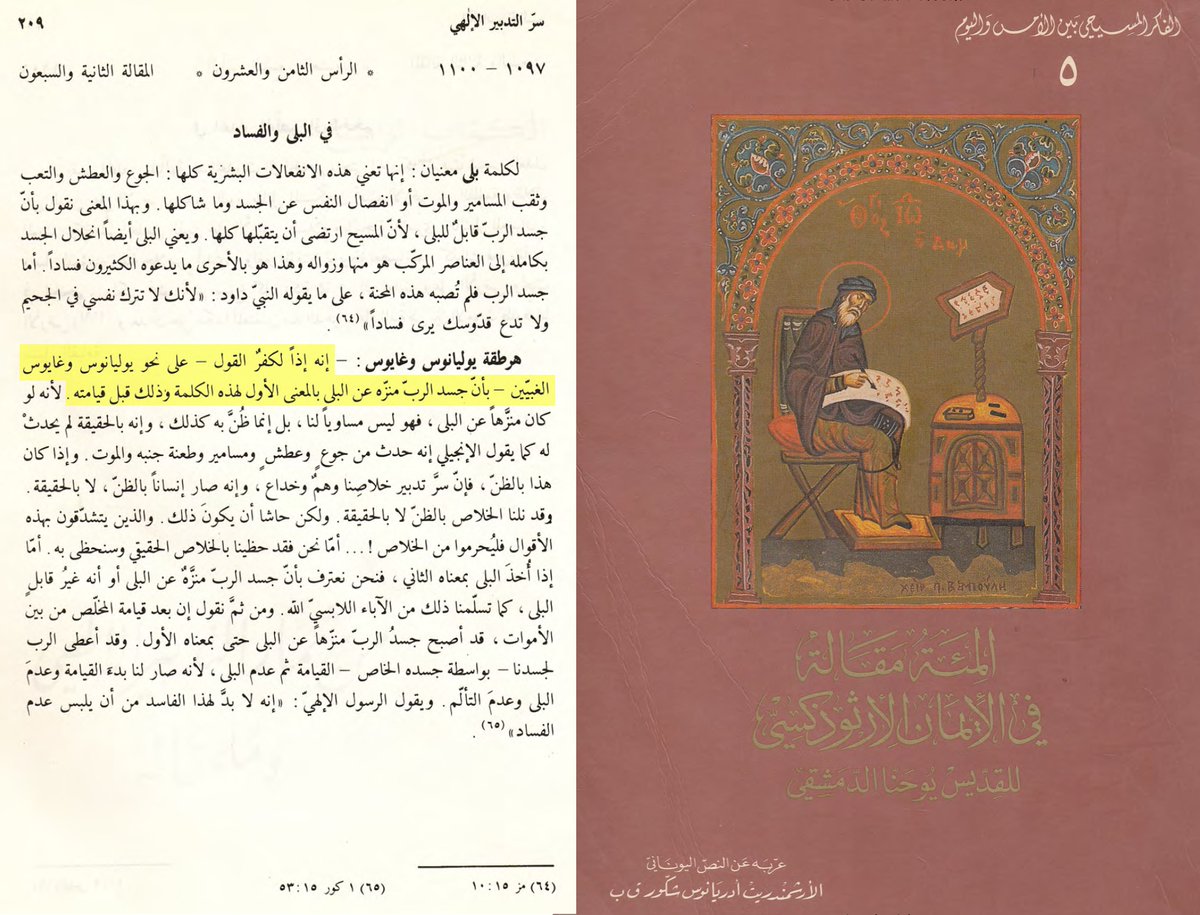 سرّ التدبير الإلٰهي ٢٠٩
١٠٩٧ – ١١٠٠ * الرأس الثامن والعشرون * المقالة الثانية والسبعون
في البلى والفساد
لكلمة بلى معنيان : إنها تعني هذه الانفعالات البشرية كلها : الجوع والعطش والتعب
وثقب المسامير والموت أو انفصال النفس عن الجسد وما شاكلها . وبهذا المعنى نقول بأنّ
جسد الربّ قابلٌ للبلى ، لأنّ المسيح ارتضى أن يتقبّلها كلها . ويعني البلى أيضاً انحلال الجسد
بكامله إلى العناصر المركّب هو منها وزواله وهذا هو بالأحرى ما يدعوه الكثيرون فساداً . أما
جسد الرب فلم تُصبه هذه المحنة ، على ما يقوله النبيّ داود : «لأنك لا تترك نفسي في الجحيم
ولا تدع قدّوسك يرى فساداً» (٦٤) .
هرطقة يوليانوس وغايوس : – إنه إذاً لكفرٌ القول – على نحو يوليانوس وغايوس
الغبيّين – بأنّ جسد الربّ منزّه عن البلى بالمعنى الأول لهذه الكلمة وذلك قبل قيامته . لأنه لو
كان منزَّهاً عن البلى ، فهو ليس مساوياً لنا ، بل إنما ظُنَّ به كذلك ، وإنه بالحقيقة لم يحدثْ
له كما يقول الإنجيلي إنه حدث من جوعٍ وعطشٍ ومسامير وطعنة جنبه والموت . وإذا كان
هذا بالظنّ ، فإنّ سرَّ تدبير خلاصِنا وهمٌ وخداع ، وإنه صار إنساناً بالظنّ ، لا بالحقيقة .
وقد نلنا الخلاص بالظنّ لا بالحقيقة . ولكن حاشا أن يكونَ ذلك . والذين يتشدّقون بهذه
الأقوال فليُحرموا من الخلاص !... أمّا نحن فقد حظينا بالخلاص الحقيقي وسنحظى به . أمّا
إذا أُخذَ البلى بمعناه الثاني ، فنحن نعترف بأنّ جسد الربّ منزَّهٌ عن البلى أو أنه غيرُ قابلٍ
البلى ، كما تسلّمنا ذلك من الآباء اللابسيّ الله . ومن ثمَّ نقول إن بعد قيامة المخلّص من بين
الأموات ، قد أصبح جسدُ الربّ منزّهاً عن البلى حتى بمعناه الأول . وقد أعطى الرب
لجسدنا – بواسطة جسده الخاص – القيامة ثم عدم البلى ، لأنه صار لنا بدءَ القيامة وعدمَ
البلى وعدمَ التألّم . ويقول الرسول الإلهيّ : «إنه لا بدَّ لهذا الفاسد من أن يلبس عدم
الفساد» (٦٥) .
(٦٤) مز ١٥:١٠ (٦٥) ١ كور ١٥:٥٣
الفكر المسيحي بين الأمس واليوم
٥
المئة مقالة
في الإيمان الأرثوذكسي
للقديس يوحنا الدمشقي
عربه عن النص اليوناني
الأرشمندريت أدريانوس شكور ق ب